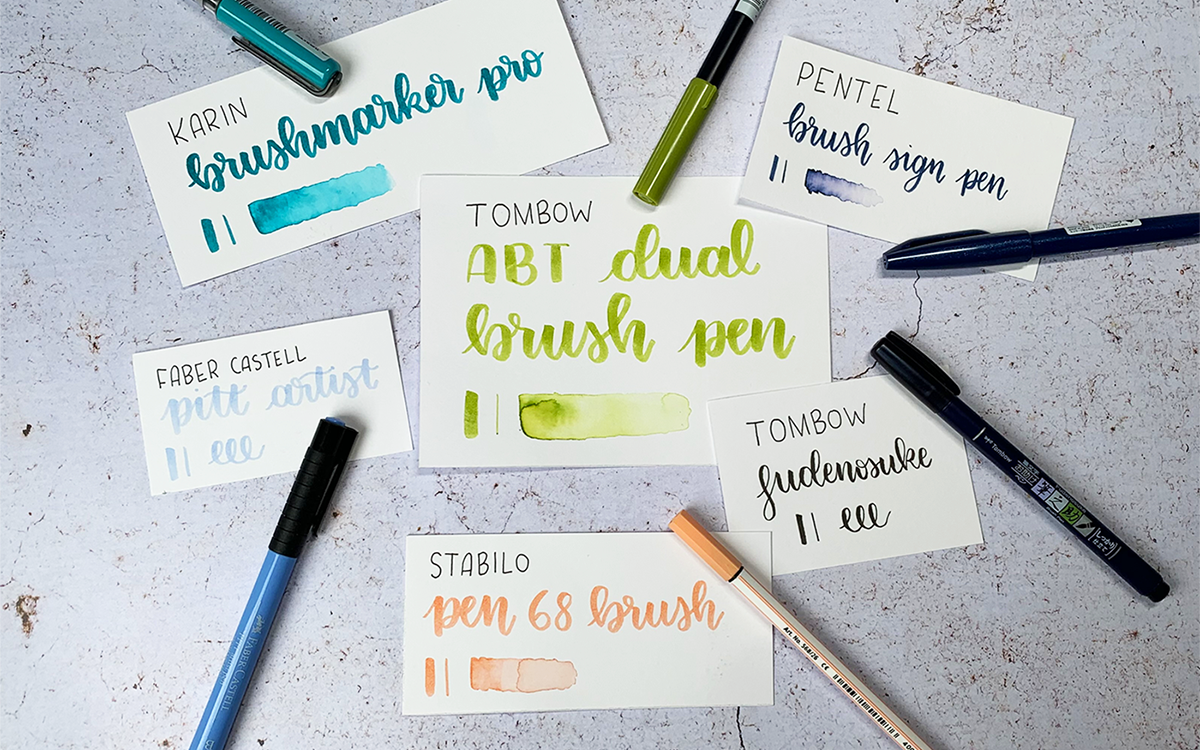 KARIN
brushmarker pro
PENTEL
brush sign pen
TOMBOW
ABT dual
brush pen
FABER CASTELL
pitt artist
eee
TOMBOW
fudenosuke
eee
STABILO
pen 68 brush
Art. No. 568/26 CE
FABER-CASTELL
Tombow
筆之助
しっかり